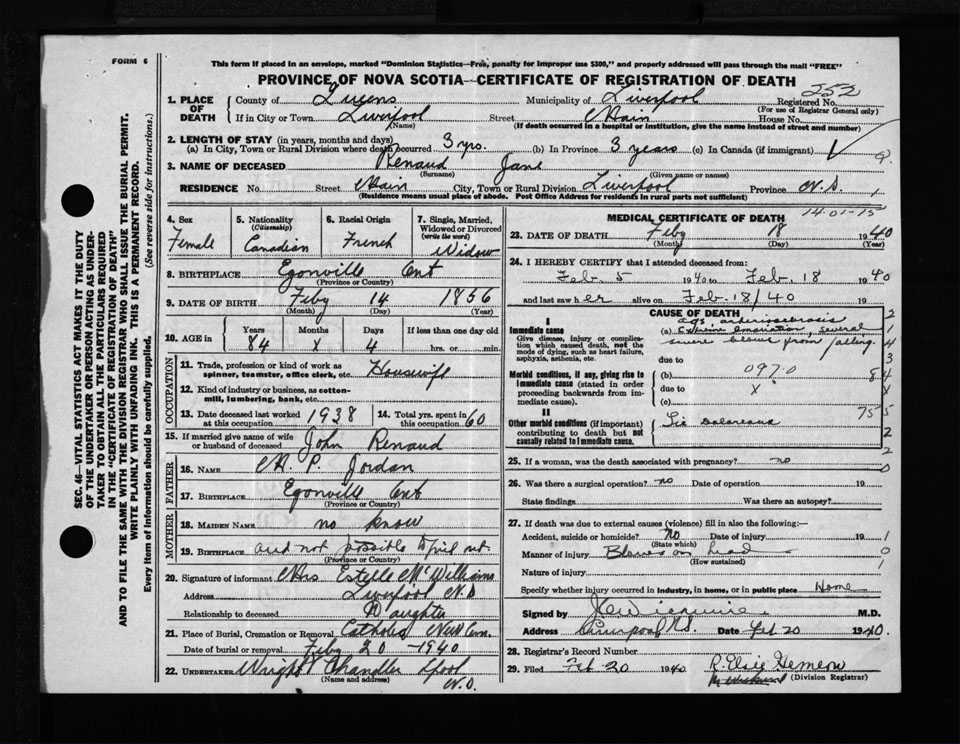 FORM 6
This form if placed in an envelope, marked "Dominion Statistics—Free, penalty for improper use $300," and properly addressed will pass through the mail "FREE"
PROVINCE OF NOVA SCOTIA—CERTIFICATE OF REGISTRATION OF DEATH
252
1. PLACE OF DEATH County of Queens Municipality of Liverpool Registered No.
(For use of Registrar General only)
If in City or Town Liverpool Street Main House No.
(Name) (If death occurred in a hospital or institution, give the name instead of street and number)
2. LENGTH OF STAY (in years, months and days)
(a) In City, Town or Rural Division where death occurred 3 yrs. (b) In Province 3 years (c) In Canada (if immigrant)
3. NAME OF DECEASED Renaud Jane
(Surname) (Given name or names)
RESIDENCE No. Street Main City, Town or Rural Division Liverpool Province N.S.
(Residence means usual place of abode. Post Office Address for residents in rural parts not sufficient)
4. Sex Female
5. Nationality (Citizenship) Canadian
6. Racial Origin French
7. Single, Married, Widowed or Divorced (write the word) Widow
8. BIRTHPLACE Egonville Ont
(Province or Country)
9. DATE OF BIRTH Feby 14 1856
(Month) (Day) (Year)
10. AGE in Years Months Days If less than one day old
84 x 4 hrs. or min.
OCCUPATION
11. Trade, profession or kind of work as spinner, teamster, office clerk, etc. Housewife
12. Kind of industry or business, as cotton-mill, lumbering, bank, etc.
13. Date deceased last worked at this occupation 1938
14. Total yrs. spent in this occupation 60
15. If married give name of wife or husband of deceased John Renaud
FATHER
16. NAME P. Jordan
17. BIRTHPLACE Egonville Ont
(Province or Country)
MOTHER
18. MAIDEN NAME no know
19. BIRTHPLACE and not possible to
(Province or Country)
20. Signature of informant Mrs Estelle McWilliams
Address Liverpool N.S
Relationship to deceased Daughter
21. Place of Burial, Cremation or Removal New Cem.
Date of burial or removal Feby 20 -1940
22. UNDERTAKER Wright Chandler Lpool
(Name and address) N.S.
MEDICAL CERTIFICATE OF DEATH
14-01-15
23. DATE OF DEATH Feby 18 1940
(Month) (Day) (Year)
24. I HEREBY CERTIFY that I attended deceased from:
Feb 5 1940 to Feb. 18 1940
and last saw her alive on Feb. 18/40 19
CAUSE OF DEATH
I
Immediate cause
Give disease, injury or complication which caused death, not the mode of dying, such as heart failure, asphyxia, asthenia, etc.
arteriosclerosis
(a) several
severe blows from falling
due to
Morbid conditions, if any, giving rise to immediate cause (stated in order proceeding backwards from immediate cause).
(b) 097.0
due to x
(c)
II
Other morbid conditions (if important) contributing to death but not causally related to immediate cause.
25. If a woman, was the death associated with pregnancy? no
26. Was there a surgical operation? no Date of operation 19
State findings Was there an autopsy?
27. If death was due to external causes (violence) fill in also the following:—
Accident, suicide or homicide? No Date of injury 19
(State which)
Manner of injury Blows on head
(How sustained)
Nature of injury
Specify whether injury occurred in industry, in home, or in public place Home
Signed by M.D.
Address Liverpool N.S. Date Feb 20 1940.
28. Registrar's Record Number
29. Filed Feb 20 1940 R. Elsie
(Division Registrar)
SEC. 46—VITAL STATISTICS ACT MAKES IT THE DUTY
OF THE UNDERTAKER OR PERSON ACTING AS UNDER-
TAKER TO OBTAIN ALL THE PARTICULARS REQUIRED
IN THE "CERTIFICATE OF REGISTRATION OF DEATH"
AND TO FILE THE SAME WITH THE DIVISION REGISTRAR WHO SHALL ISSUE THE BURIAL PERMIT.
WRITE PLAINLY WITH UNFADING INK. THIS IS A PERMANENT RECORD.
Every item of Information should be carefully supplied. (See reverse side for instructions.)